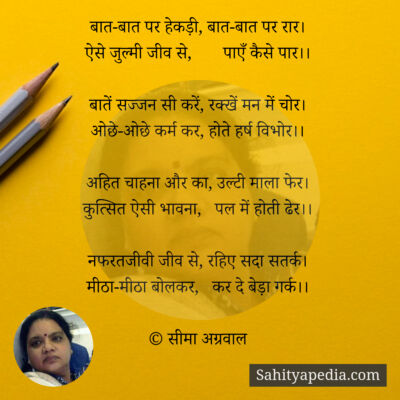 बात-बात पर हेकड़ी, बात-बात पर रार।
ऐसे जुल्मी जीव से, पाएँ कैसे पार।।
बातें सज्जन सी करें, रक्खें मन में चोर।
ओछे-ओछे कर्म कर, होते हर्ष विभोर।।
अहित चाहना और का, उल्टी माला फेर।
कुत्सित ऐसी भावना, पल में होती ढेर।।
नफरतजीवी जीव से, रहिए सदा सतर्क।
मीठा-मीठा बोलकर, कर दे बेड़ा गर्क।।
© सीमा अग्रवाल
Sahityapedia.com